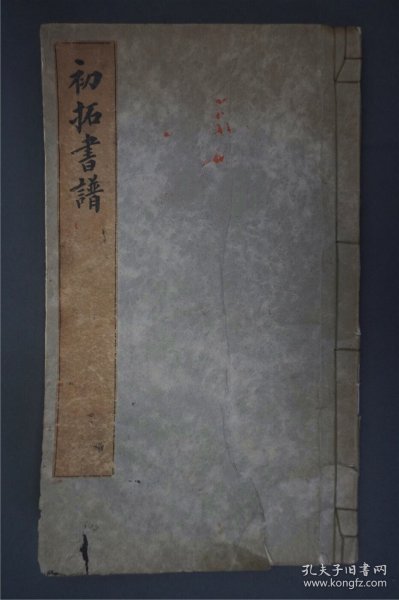 初拓書譜
孔夫子旧書网
https://www.kongfz.com